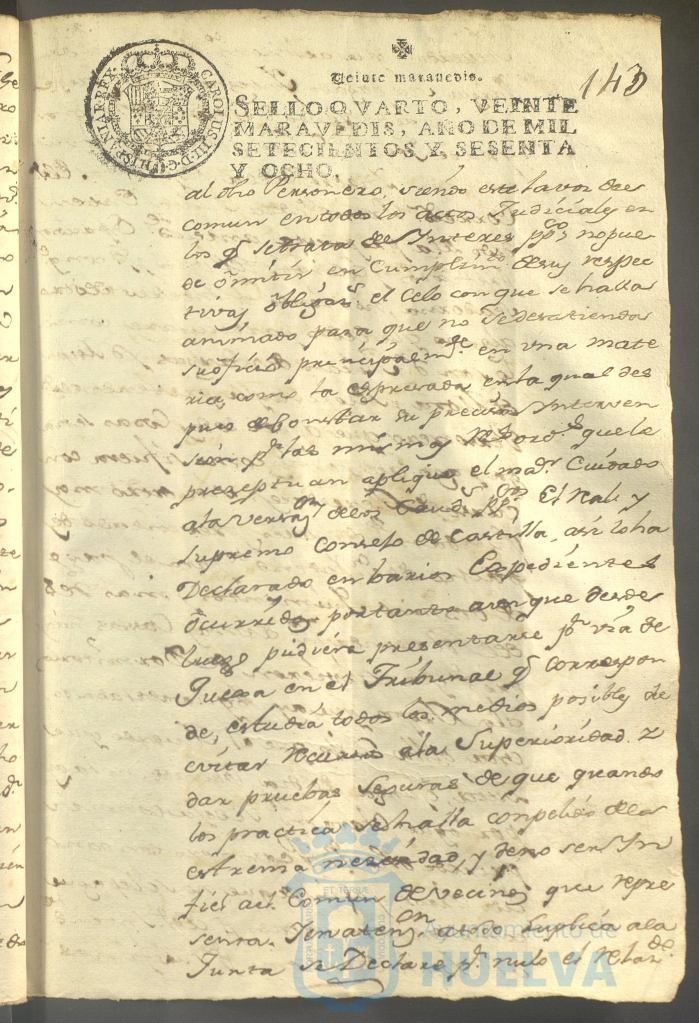 143
Veinte maravedis.
SELLO QVARTO, VEINTE
MARAVEDIS, AÑO DE MIL
SETECIENTOS Y SESENTA
Y OCHO.
CAROLUS III D G HISPANIAR REX
al dho Personero, siendo este la voz del
comun en todos los actos Judiciales en
los q.e se trata de Interes pp.co no pue
de omitir en Cumplim.to de sus respec
tivas obligaz.s el Celo con que se halla
animado para que no se desatienda
su oficio principalm.te en una mate
ria como la expresada en la qual des
pues de constar su precisa Interven
sion p.r las mismas R.s ord.s que le
preseptuan aplique el ma.or Cuidado
a la Versaz.on de los Caud.s pp.cos El Real y
Supremo Consejo de Castilla, asi lo ha
Declarado en barios Expedientes
ocurridos portanto aunque desde
luego pudiera presentarse p.r via de
Quexa en el Tribunal q.e correspon
de, estudia todos los medios posibles de
evitar recursos a la Superioridad. Y
dar pruebas seguras de que quando
los practica, se halla conpelido de la
estrema nezesidad, y de no ser In
fiel al Comun de Vecinos que repre
senta. En aten.on a lo Suplica a la
Junta se Declare p.r nulo el
ET TERRAE
Ayuntamiento de
HUELVA